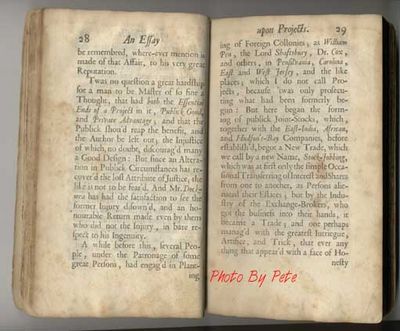 28 An Essay
be remembred, where-ever mention is
made of that Affair, to his very great
Reputation.
'Twas no question a great hardship
for a man to be Master of so fine a
Thought, that had both the Essential
Ends of a Project in it, Publick Good,
and Private Advantage; and that the
Publick shou'd reap the benefit, and
the Author be left out; the Injustice
of which, no doubt, discourag'd many
a Good Design: But since an Altera-
tion in Publick Circumstances has re-
cover'd the lost Attribute of Justice, the
like is not to be fear'd. And Mr. Dock-
wra has had the satisfaction to see the
former Injury disown'd, and an ho-
nourable Return made even by them
who did not the Injury, in bare re-
spect to his Ingenuity.
A while before this, several Peo-
ple, under the Patronage of some
great Persons, had engag'd in Plant-
ing
upon Projects. 29
ing of Foreign Collonies; as William
Pen, the Lord Shaftsbury, Dr. Cox,
and others, in Pensilvania, Carolina,
East and West Jersey, and the like
places; which I do not call Pro-
jects, because 'twas only prosecu-
ting what had been formerly be-
gun: But here began the form-
ing of publick Joint-Stocks, which,
together with the East-India, African,
and Hudson's-Bay Companies, before
establish'd, begot a New Trade, which
we call by a new Name, Stock-Jobbing,
which was at first only the simple Occa-
sional Transferring of Interest and Shares
from one to another, as Persons alie-
nated their Estates; but by the Indu-
stry of the Exchange-Brokers, who
got the business into their hands, it
became a Trade; and one perhaps
manag'd with the greatest Intriegue,
Artifice, and Trick, that ever any
thing that appear'd with a face of Ho-
nesty
Photo By Pete